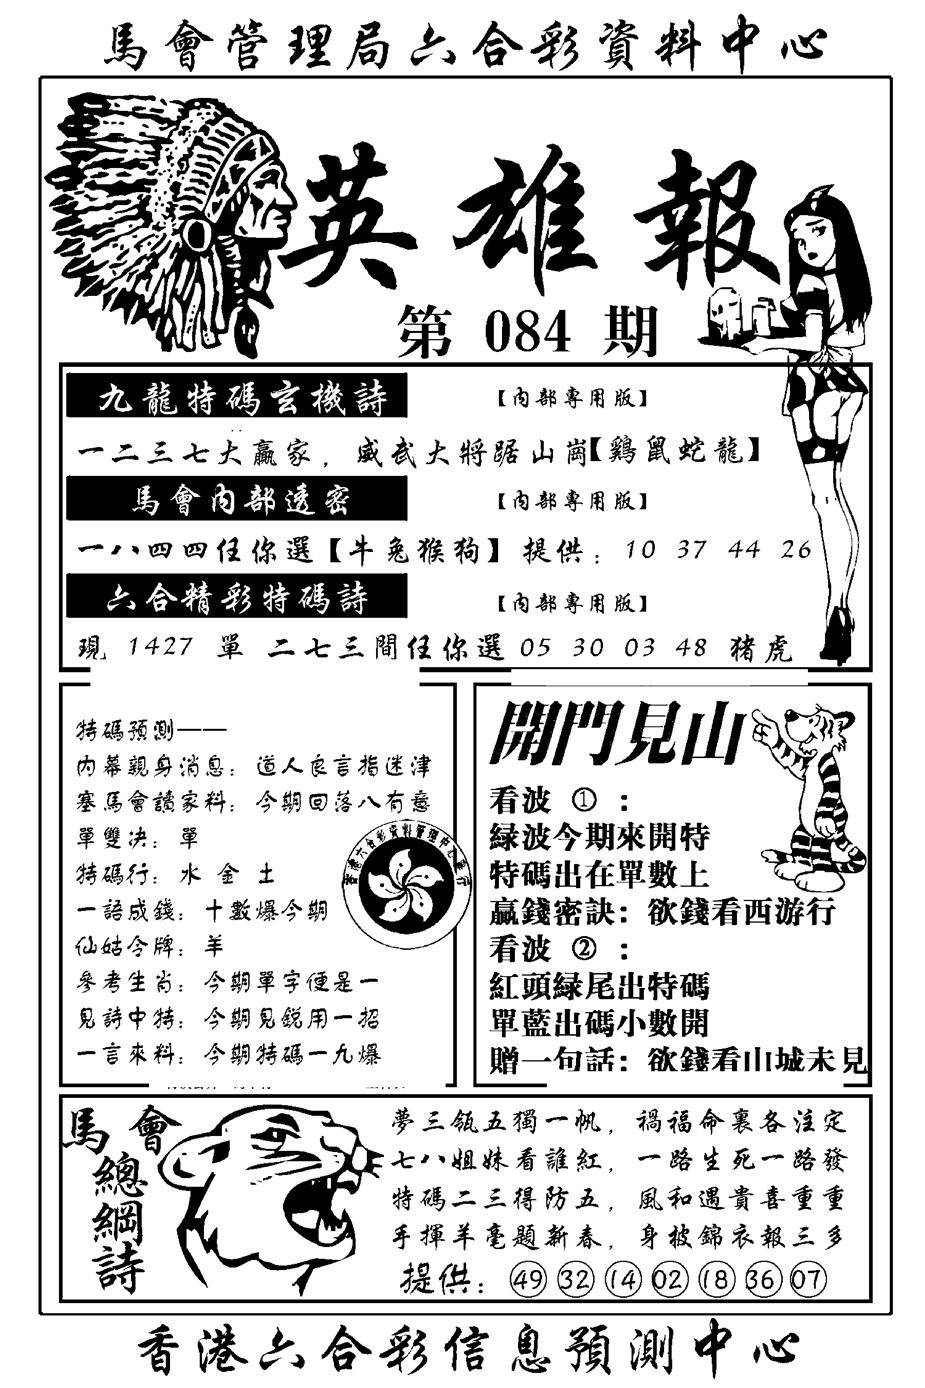 馬會管理局六合彩資料中心
英雄報
第 084 期
九龍特碼玄機詩 【内部專用版】
一二三七大贏家，威武大將踞山崗【鷄鼠蛇龍】
馬會内部透密 【内部專用版】
一八四四任你選【牛兔猴狗】 提供：10 37 44 26
六合精彩特碼詩 【内部專用版】
現 1427 單 二七三間任你選 05 30 03 48 猪虎
特碼預測——
内幕親身消息：道人良言指迷津
塞馬會讀家料：今期回落八有意
單雙决：單
特碼行：水 金 土
一語成錢：十數爆今期
仙姑令牌：羊
參考生肖：今期單字便是一
見詩中特：今期見鋭用一招
一言來料：今期特碼一九爆
香港六合彩資料管理中心發行
開門見山
看波 ①：
緑波今期來開特
特碼出在單數上
贏錢密訣：欲錢看西游行
看波 ②：
紅頭緑尾出特碼
單藍出碼小數開
贈一句話：欲錢看山城未見
馬會
總綱詩
夢三瓴五獨一帆，禍福命裏各注定
七八姐妹看誰紅，一路生死一路發
特碼二三得防五，風和遇貴喜重重
手揮羊毫題新春，身被錦衣報三多
提供：㊾ ㉜ ⑭ 02 ⑱ ㊱ 07
香港六合彩信息預測中心